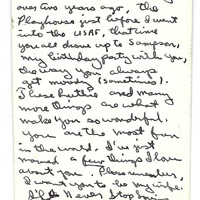 over two years ago, the
Playhouse just before I went
into the USAF, that time
you all drove up to Sampson,
my birthday party with you,
the way you always
get moody (sometimes).
These little and many
more things are what
make you so wonderful.
you are the most fun
in the world. I've just
named a few things I love
about you. Please remember,
I want you to be my wife.
I'll Never Stop